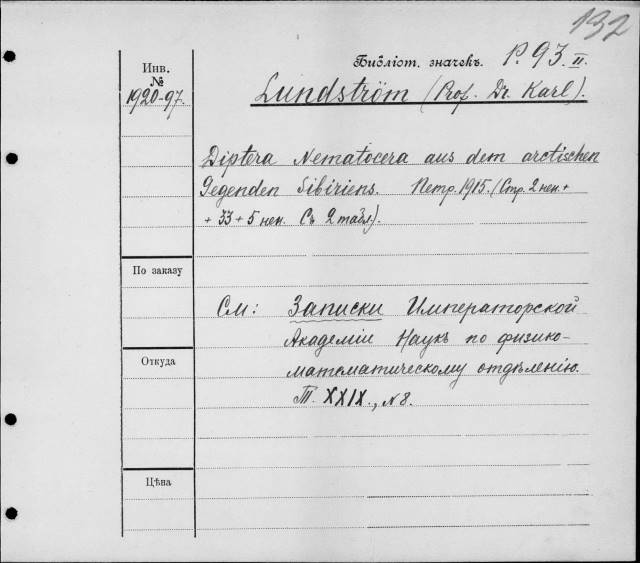 132
Библіот. значекъ. P. 93 II.
Инв.
№
1920-97.
Lundström (Prof. Dr. Karl).
Diptera Nematocera aus dem arctischen
Gegenden Sibiriens. Петр. 1915. (Стр. 2 нен. +
+ 33 + 5 нен. Съ 2 табл.).
По заказу
См: Записки Императорской
Академіи Наукъ по физико-
математическому отдѣленію.
Т. XXIX., № 8.
Откуда
Цѣна